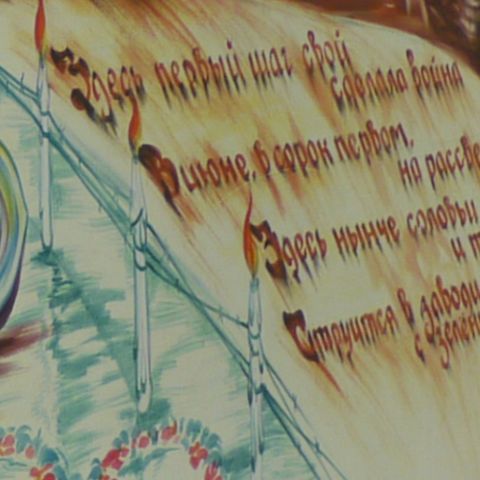 Здесь первый шаг свой
сделала война
В июне, в сорок первом,
на
Здесь нынче соловьи
и
Струится в
с